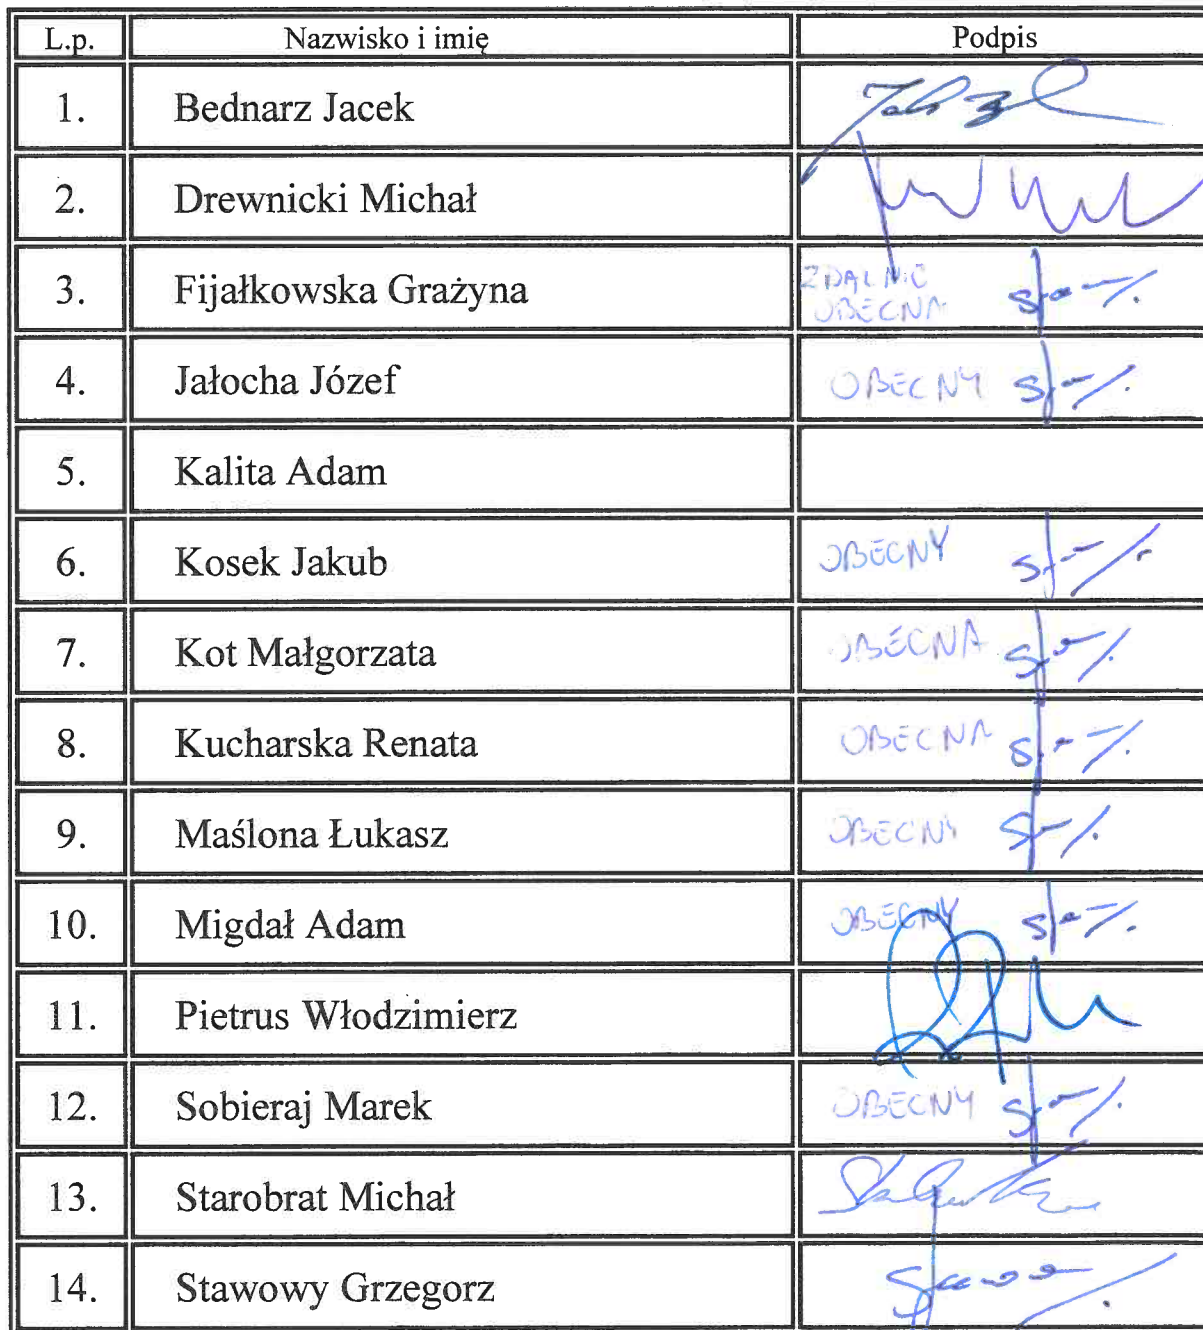 L.p. Nazwisko i imię Podpis
1. Bednarz Jacek
2. Drewnicki Michał
3. Fijałkowska Grażyna ZDALNIE
OBECNA
4. Jałocha Józef OBECNY
5. Kalita Adam
6. Kosek Jakub OBECNY
7. Kot Małgorzata OBECNA
8. Kucharska Renata OBECNA
9. Maślona Łukasz OBECNY
10. Migdał Adam OBECNY
11. Pietrus Włodzimierz
12. Sobieraj Marek OBECNY
13. Starobrat Michał
14. Stawowy Grzegorz